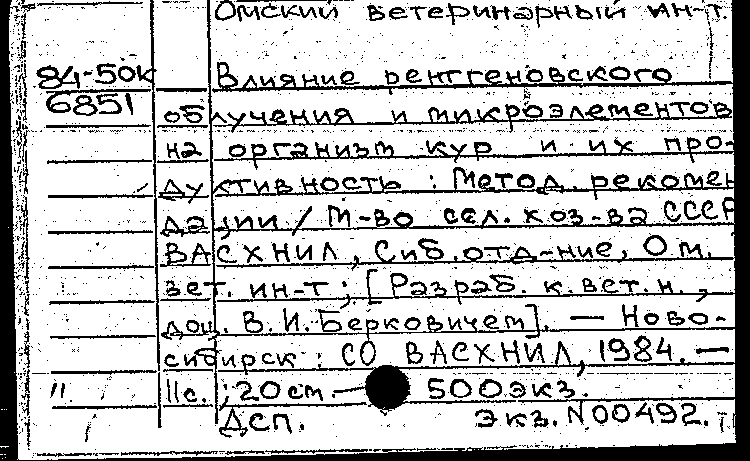 Омский ветеринарный ин-т.
84-50к Влияние рентгеновского
6851 облучения и микроэлементов
на организм кур и их про-
дуктивность : Метод. рекомен
дации / М-во сел. хоз-ва СССР
ВАСХНИЛ, Сиб. отд-ние, Ом.
вет. ин-т ; [Разраб. к. вет. н.,
доц. В. И. Берковичем]. — Ново-
сибирск : СО ВАСХНИЛ, 1984. —
" 11с. ; 20 см. — 500 экз.
ДСП. Экз. N 00492.